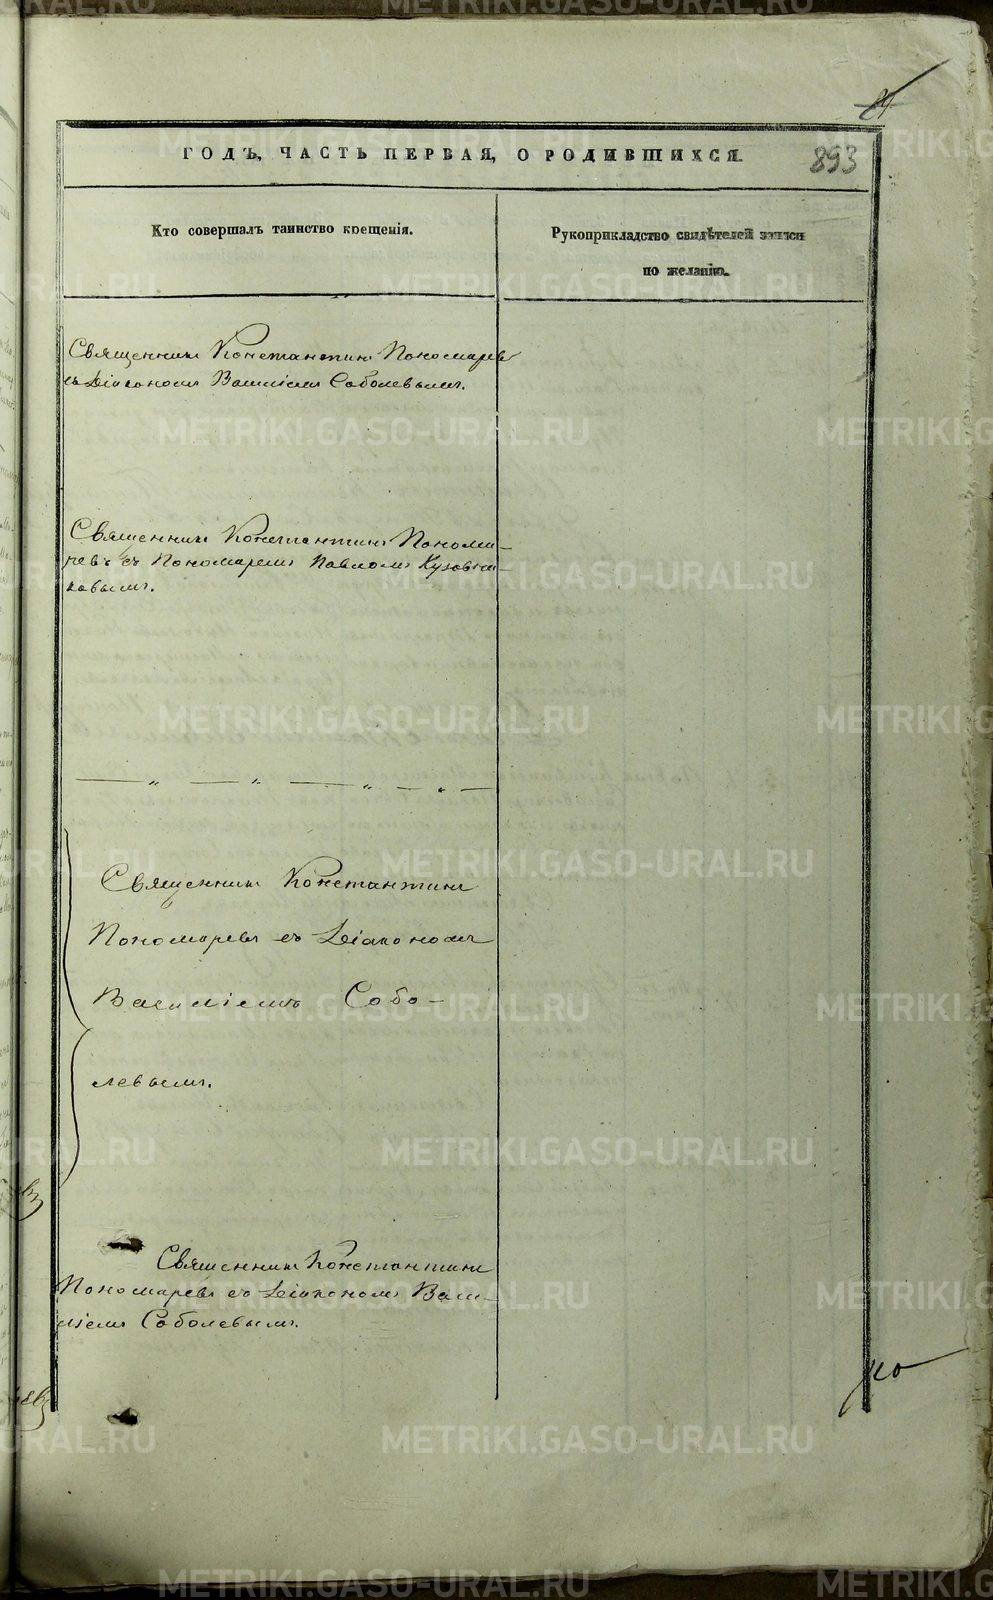 ГОДЪ, ЧАСТЬ ПЕРВАЯ, О РОДИВШИХСЯ.
893
Кто совершалъ таинство крещенія.
Рукоприкладство свидѣтелей записи
по желанію.
Священникъ Константинъ Пономаревъ
съ Діакономъ Василіемъ Соболевымъ.
Священникъ Константинъ Понома-
ревъ съ Пономаремъ Павломъ Кузовни-
ковымъ.
— „ — „ — „ — „ —
Священникъ Константинъ
Пономаревъ съ Діакономъ
Василіемъ Собо-
левымъ.
Священникъ Константинъ
Пономаревъ съ Діакономъ Васи-
ліемъ Соболевымъ.
по
METRIKI.GASO-URAL.RU